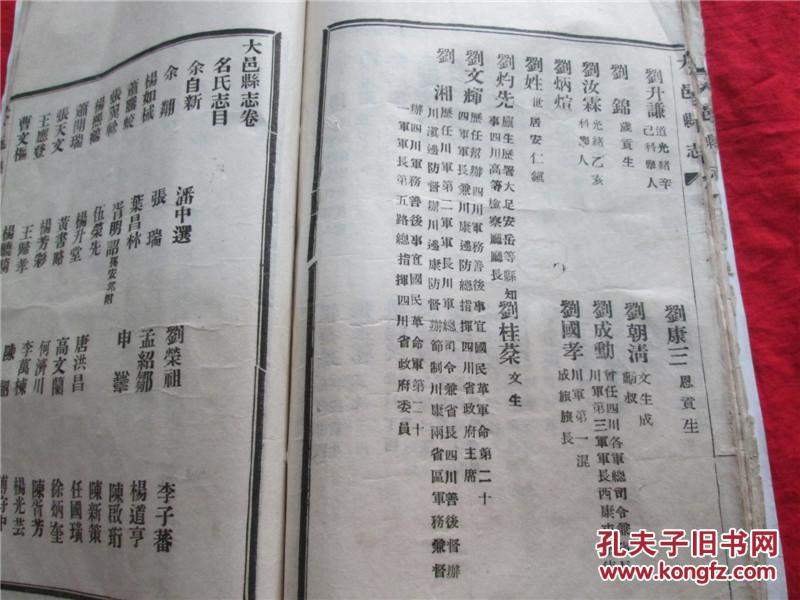 大邑縣志
劉升謙 道光緒辛
己科舉人
劉康三 恩貢生
劉錦 歲貢生
劉朝清 文生成
勳叔
劉汝霖 光緒乙亥
科舉人
劉成勳 曾任四川各軍總司令兼省長
川軍第三軍軍長西康屯
劉炳煊
劉國孝 川軍第一混
成旅旅長
劉姓 世居安仁鎮
劉灼先 廩生歷署大足安岳等縣知
事四川高等檢察廳廳長
劉桂蘂 文生
劉文輝 歷任幫辦四川軍務善後事宜國民革軍命第二十
四軍軍長兼川康邊防總指揮四川省政府主席
劉湘 歷任川軍第二軍軍長川軍總司令兼省長四川善後督辦
川滇邊防督辦川邊康防督辦節制川康兩省區軍務兼督
辦四川軍務善後事宜國民革命軍第二十
一軍軍長第五路總指揮四川省政府委員
大邑縣志卷
名氏志目
余自新
余翔 潘中選 劉榮祖 李子蕃
楊如棫 張瑞 孟紹鄒 楊道亨
蕭騰蛟 葉昌林 申 陳啟珩
張翼軫 胥明詔 陳新策
楊熙 伍榮先 唐洪昌 任國璜
蕭開瑞 楊升堂 高文蘭 徐炳奎
張天文 黃書略 何濟川 陳胥芳
王應登 楊芳彩 李萬棟 楊光芸
曹文樞 王興孝 陳 傅守中
孔夫子旧书网
www.kongfz.com